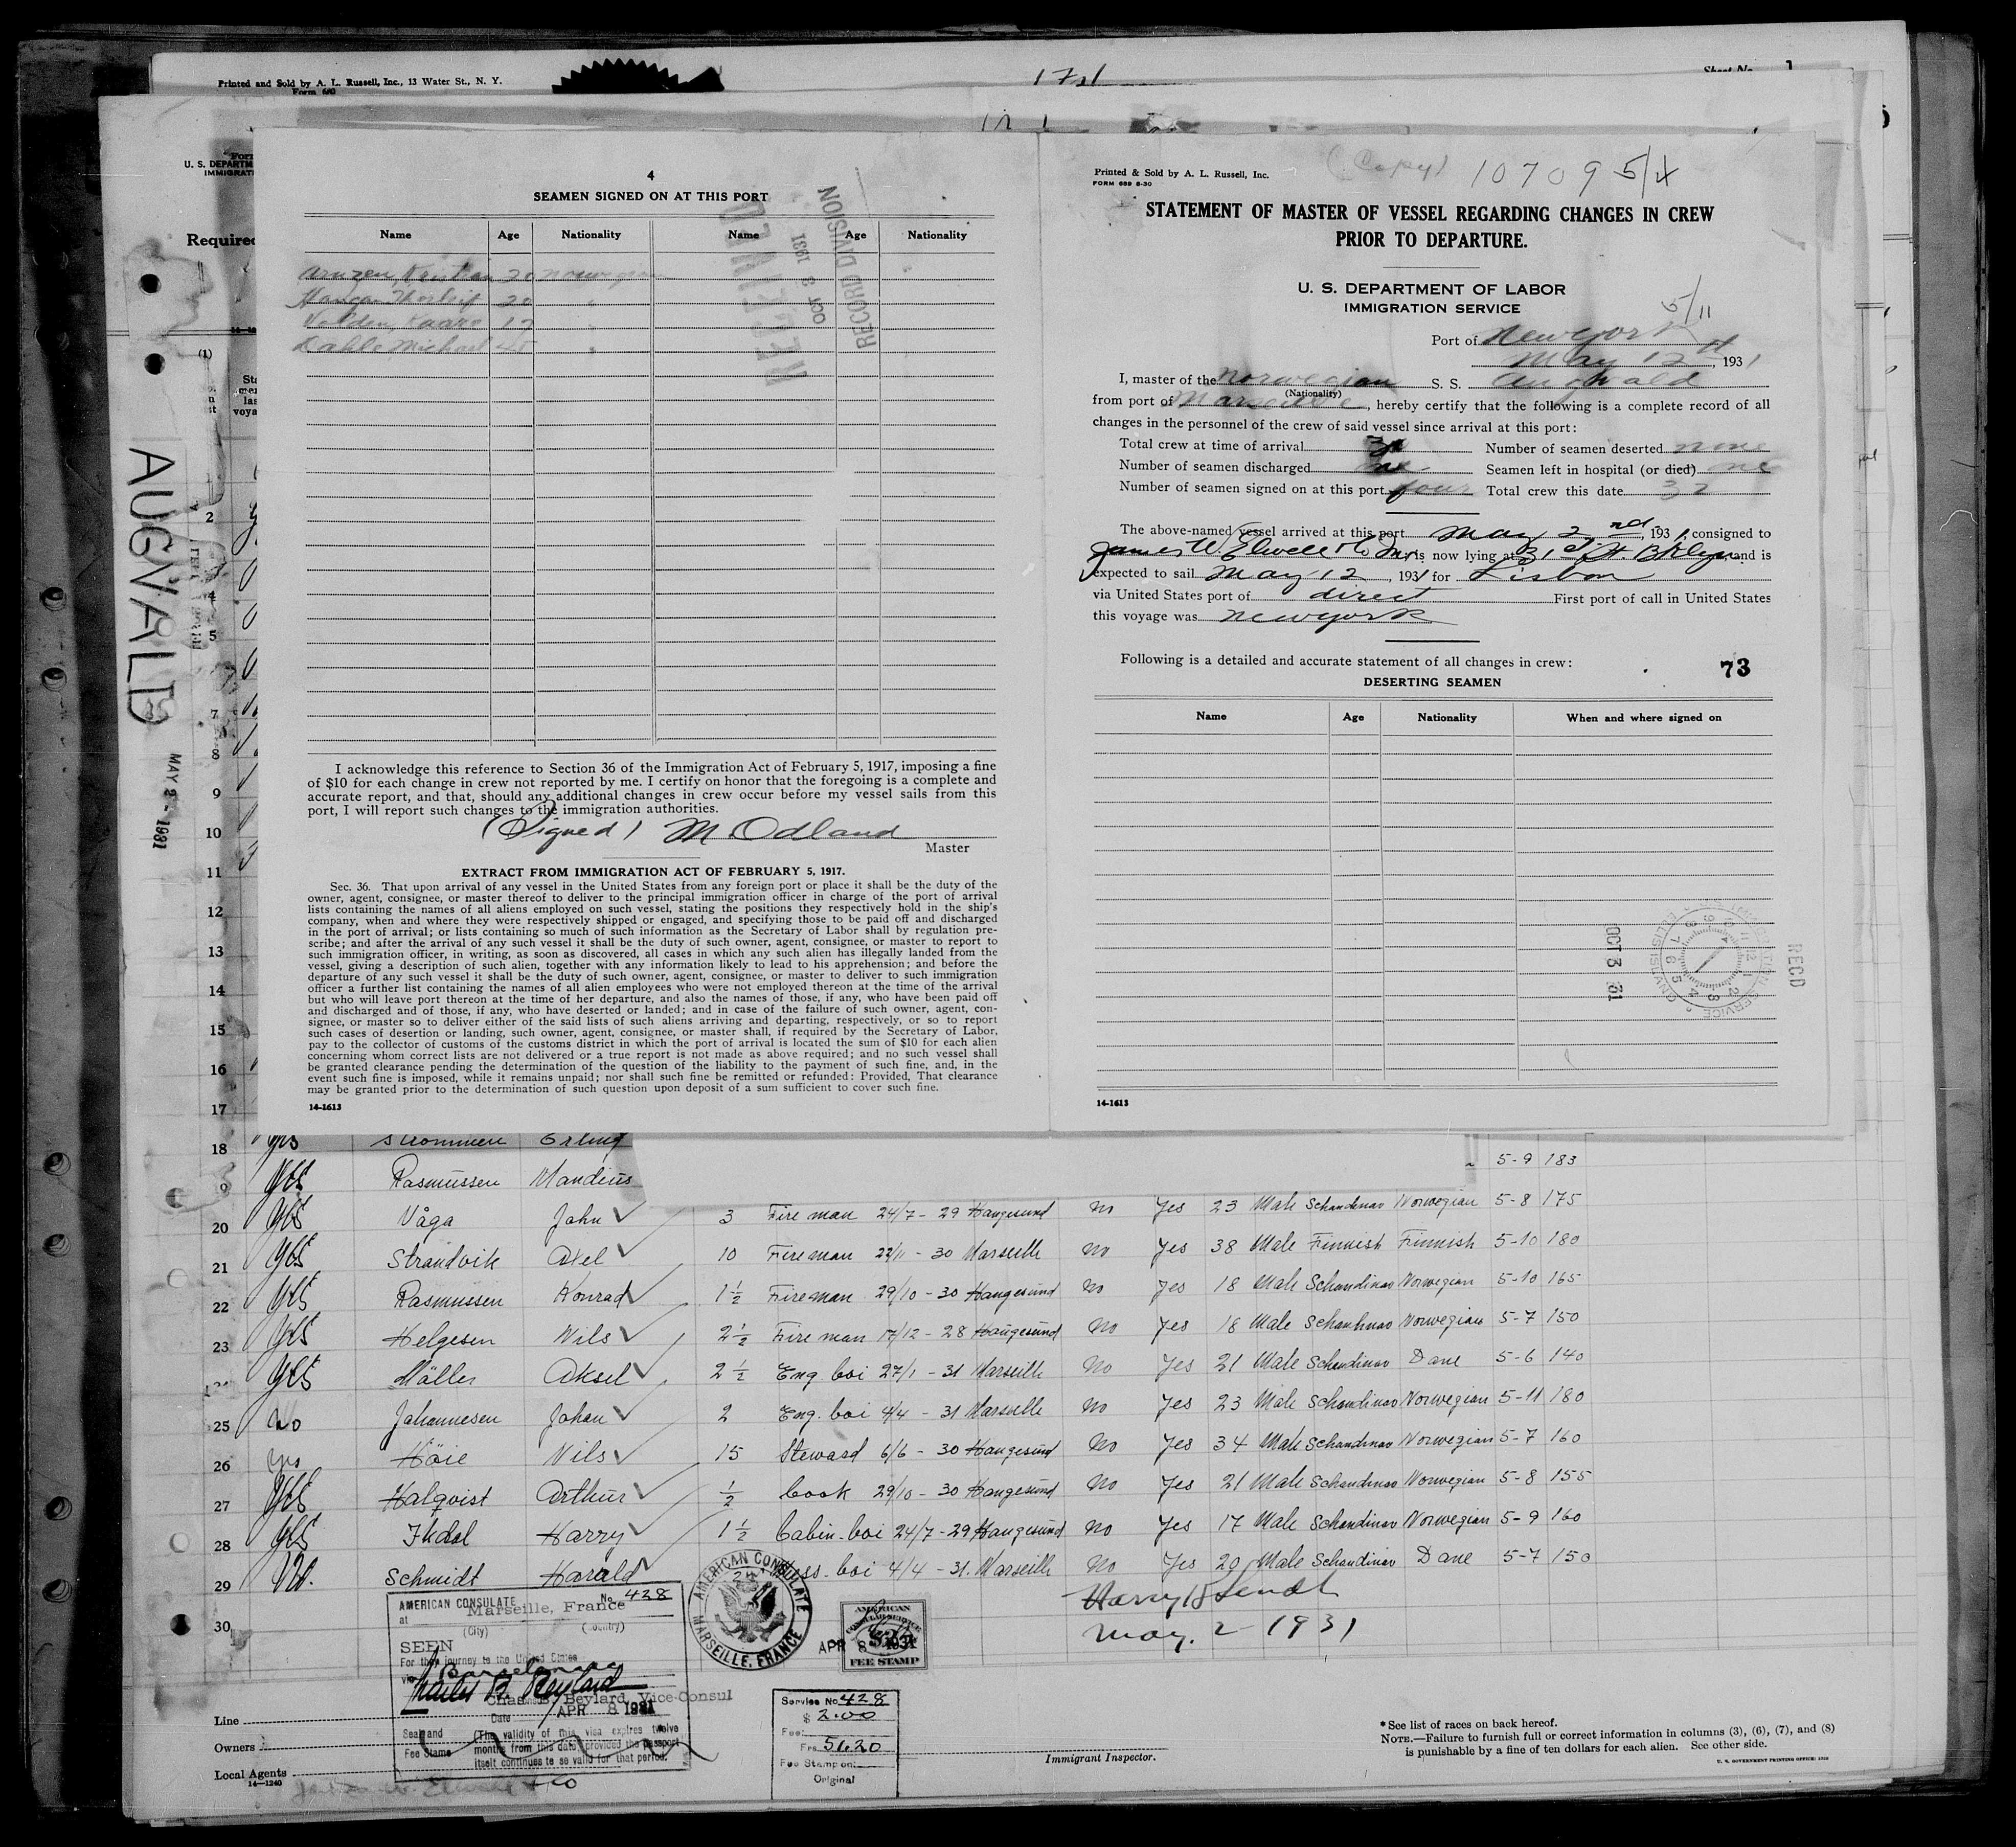 Printed and Sold by A. L. Russell, Inc., 13 Water St., N. Y.
Form 680
Sheet No. 1
U. S. DEPARTM
IMMIGRAT
Required
AUGVALD
MAY 2 - 1931
4
SEAMEN SIGNED ON AT THIS PORT
Name Age Nationality Name Age Nationality
20 Norwegian
Thorleif 20 "
Kaare 17 "
Dahle Michael 45 "
OCT 3 1931
RECORD DIVISION
I acknowledge this reference to Section 36 of the Immigration Act of February 5, 1917, imposing a fine
of $10 for each change in crew not reported by me. I certify on honor that the foregoing is a complete and
accurate report, and that, should any additional changes in crew occur before my vessel sails from this
port, I will report such changes to the immigration authorities.
(Signed) M. Odland
Master
EXTRACT FROM IMMIGRATION ACT OF FEBRUARY 5, 1917.
Sec. 36. That upon arrival of any vessel in the United States from any foreign port or place it shall be the duty of the
owner, agent, consignee, or master thereof to deliver to the principal immigration officer in charge of the port of arrival
lists containing the names of all aliens employed on such vessel, stating the positions they respectively hold in the ship's
company, when and where they were respectively shipped or engaged, and specifying those to be paid off and discharged
in the port of arrival; or lists containing so much of such information as the Secretary of Labor shall by regulation pre-
scribe; and after the arrival of any such vessel it shall be the duty of such owner, agent, consignee, or master to report to
such immigration officer, in writing, as soon as discovered, all cases in which any such alien has illegally landed from the
vessel, giving a description of such alien, together with any information likely to lead to his apprehension; and before the
departure of any such vessel it shall be the duty of such owner, agent, consignee, or master to deliver to such immigration
officer a further list containing the names of all alien employees who were not employed thereon at the time of the arrival
but who will leave port thereon at the time of her departure, and also the names of those, if any, who have been paid off
and discharged and of those, if any, who have deserted or landed; and in case of the failure of such owner, agent, con-
signee, or master so to deliver either of the said lists of such aliens arriving and departing, respectively, or so to report
such cases of desertion or landing, such owner, agent, consignee, or master shall, if required by the Secretary of Labor,
pay to the collector of customs of the customs district in which the port of arrival is located the sum of $10 for each alien
concerning whom correct lists are not delivered or a true report is not made as above required; and no such vessel shall
be granted clearance pending the determination of the question of the liability to the payment of such fine, and, in the
event such fine is imposed, while it remains unpaid; nor shall such fine be remitted or refunded: Provided, That clearance
may be granted prior to the determination of such question upon deposit of a sum sufficient to cover such fine.
14-1613
(Copy) 10709 5/4
Printed & Sold by A. L. Russell, Inc.
FORM 689 6-30
STATEMENT OF MASTER OF VESSEL REGARDING CHANGES IN CREW
PRIOR TO DEPARTURE.
U. S. DEPARTMENT OF LABOR
IMMIGRATION SERVICE
5/11
Port of New York
May 12, 1931
I, master of the Norwegian S. S. Augvald
(Nationality)
from port of Marseille, hereby certify that the following is a complete record of all
changes in the personnel of the crew of said vessel since arrival at this port:
Total crew at time of arrival Number of seamen deserted none
Number of seamen discharged Seamen left in hospital (or died) one
Number of seamen signed on at this port four Total crew this date 32
The above-named vessel arrived at this port May 2nd, 1931, consigned to
James W. Elwell & Co Inc, is now lying at 31 St. Bklyn and is
expected to sail May 12, 1931 for Lisbon
via United States port of direct First port of call in United States
this voyage was New york
Following is a detailed and accurate statement of all changes in crew: 73
DESERTING SEAMEN
Name Age Nationality When and where signed on
RECD
OCT 3 31
14-1613
18 yes Strommen Erling
19 yes Rasmussen Mandius 5-9 183
20 yes Våga John 3 Fire man 24/7 - 29 Haugesund No Yes 23 Male Schandinav Norwegian 5-8 175
21 yes Strandvik Axel 10 Fireman 22/11 - 30 Marseille No Yes 38 Male Finnish Finnish 5-10 180
22 yes Rasmussen Konrad 1 1/2 Fireman 29/10 - 30 Haugesund No Yes 18 Male Schandinav Norwegian 5-10 165
23 yes Helgesen Nils 2 1/2 Fire man 17/12 - 28 Haugesund No Yes 18 Male Schandinav Norwegian 5-7 150
24 yes Möller Aksel 2 1/2 Eng boi 27/1 - 31 Marseille No Yes 21 Male Schandinav Dane 5-6 140
25 no Johannesen Johan 2 Eng. boi 4/4 - 31 Marseille No Yes 23 Male Schandinav Norwegian 5-11 180
26 yes Höie Nils 15 Steward 6/6 - 30 Haugesund No Yes 34 Male Schandinav Norwegian 5-7 160
27 yes Halqvist Arthur 1/2 Cook 29/10 - 30 Haugesund No Yes 21 Male Schandinav Norwegian 5-8 155
28 yes Ihdal Harry 1 1/2 Cabin-boi 24/7 - 29 Haugesund No Yes 17 Male Schandinav Norwegian 5-9 160
29 No. Schmidt Harald Mess. boi 4/4 - 31. Marseille No Yes 20 Male Schandinav Dane 5-7 150
30
May. 2 1931
AMERICAN CONSULATE No. 428
at Marseille, France
(City) (Country)
SEEN
For the journey to the United States
via Barcelona
Charles B. Beylard
Chas. B. Beylard, Vice-Consul
Date APR 8 1931
Seal and Fee Stamp
(The validity of this visa expires twelve
months from this date, provided the passport
itself continues to be valid for that period.
AMERICAN CONSULATE
MARSEILLE, FRANCE
APR 8 1931
AMERICAN
CONSULAR SERVICE
FEE STAMP
Service No. 428
$ 2.00
Fee:
Frs 51.20
Fee Stamp on:
Original
Line
Owners
Local Agents
14-1240
Immigrant Inspector.
*See list of races on back hereof.
NOTE.—Failure to furnish full or correct information in columns (3), (6), (7), and (8)
is punishable by a fine of ten dollars for each alien. See other side.
U. S. GOVERNMENT PRINTING OFFICE: 1930